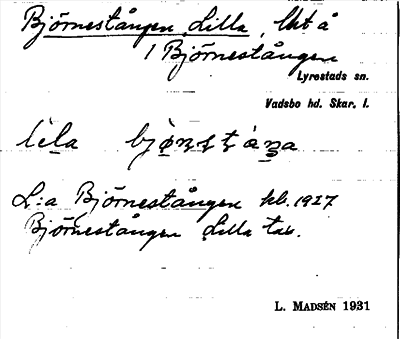 Björnestången, Lilla, lht å
1 Björnestången
Lyrestads sn.
Vadsbo hd. Skar. l.
L:a Björnestången kb. 1927
Björnestången Lilla tax.
L. MADSÉN 1931